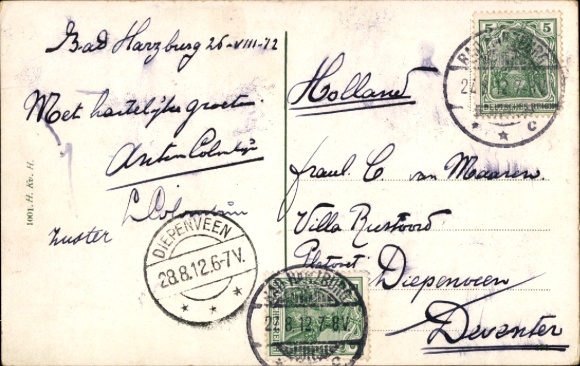 Bad Harzburg 26-VIII-12
Met hartelijke groeten
Anton
zuster
1001. H. Ko. H.
DIEPENVEEN
28.8.12.6-7V.
* * *
Holland
fraul. C. van Maaren
Villa Rustoord
Platvoet
Diepenveen
Deventer
5 5
DEUTSCHES REICH
BAD HARZBURG
* * c
BAD HARZBURG
27.8.12.7-8V.
* c